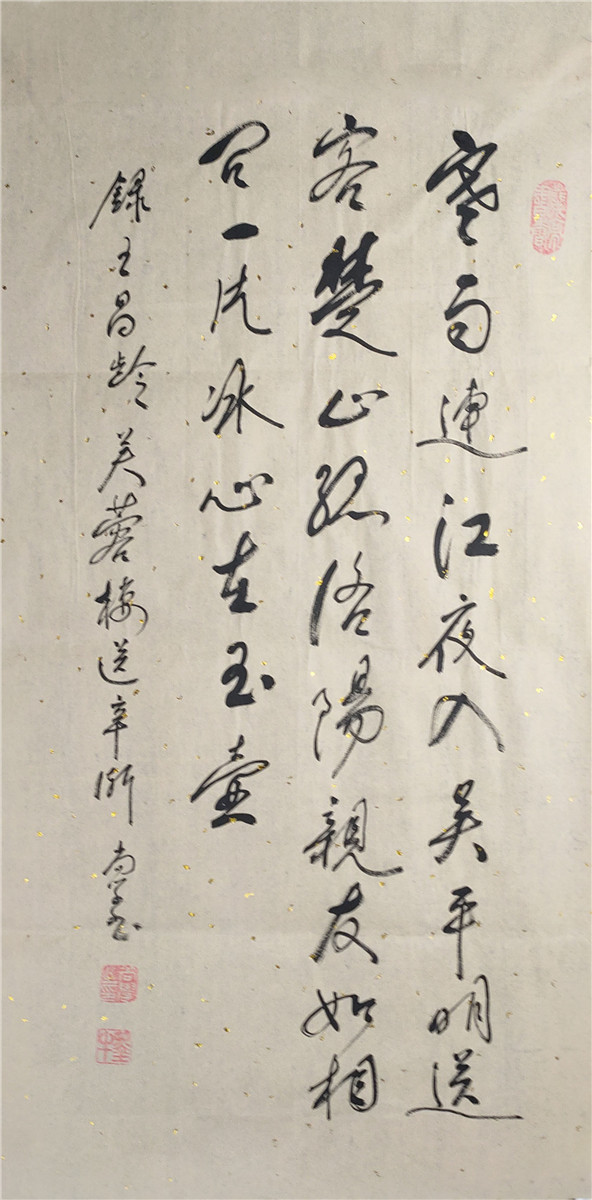 寒雨連江夜入吳平明送
客楚山孤洛陽親友如相
問一片冰心在玉壺
錄王昌齡芙蓉樓送辛漸